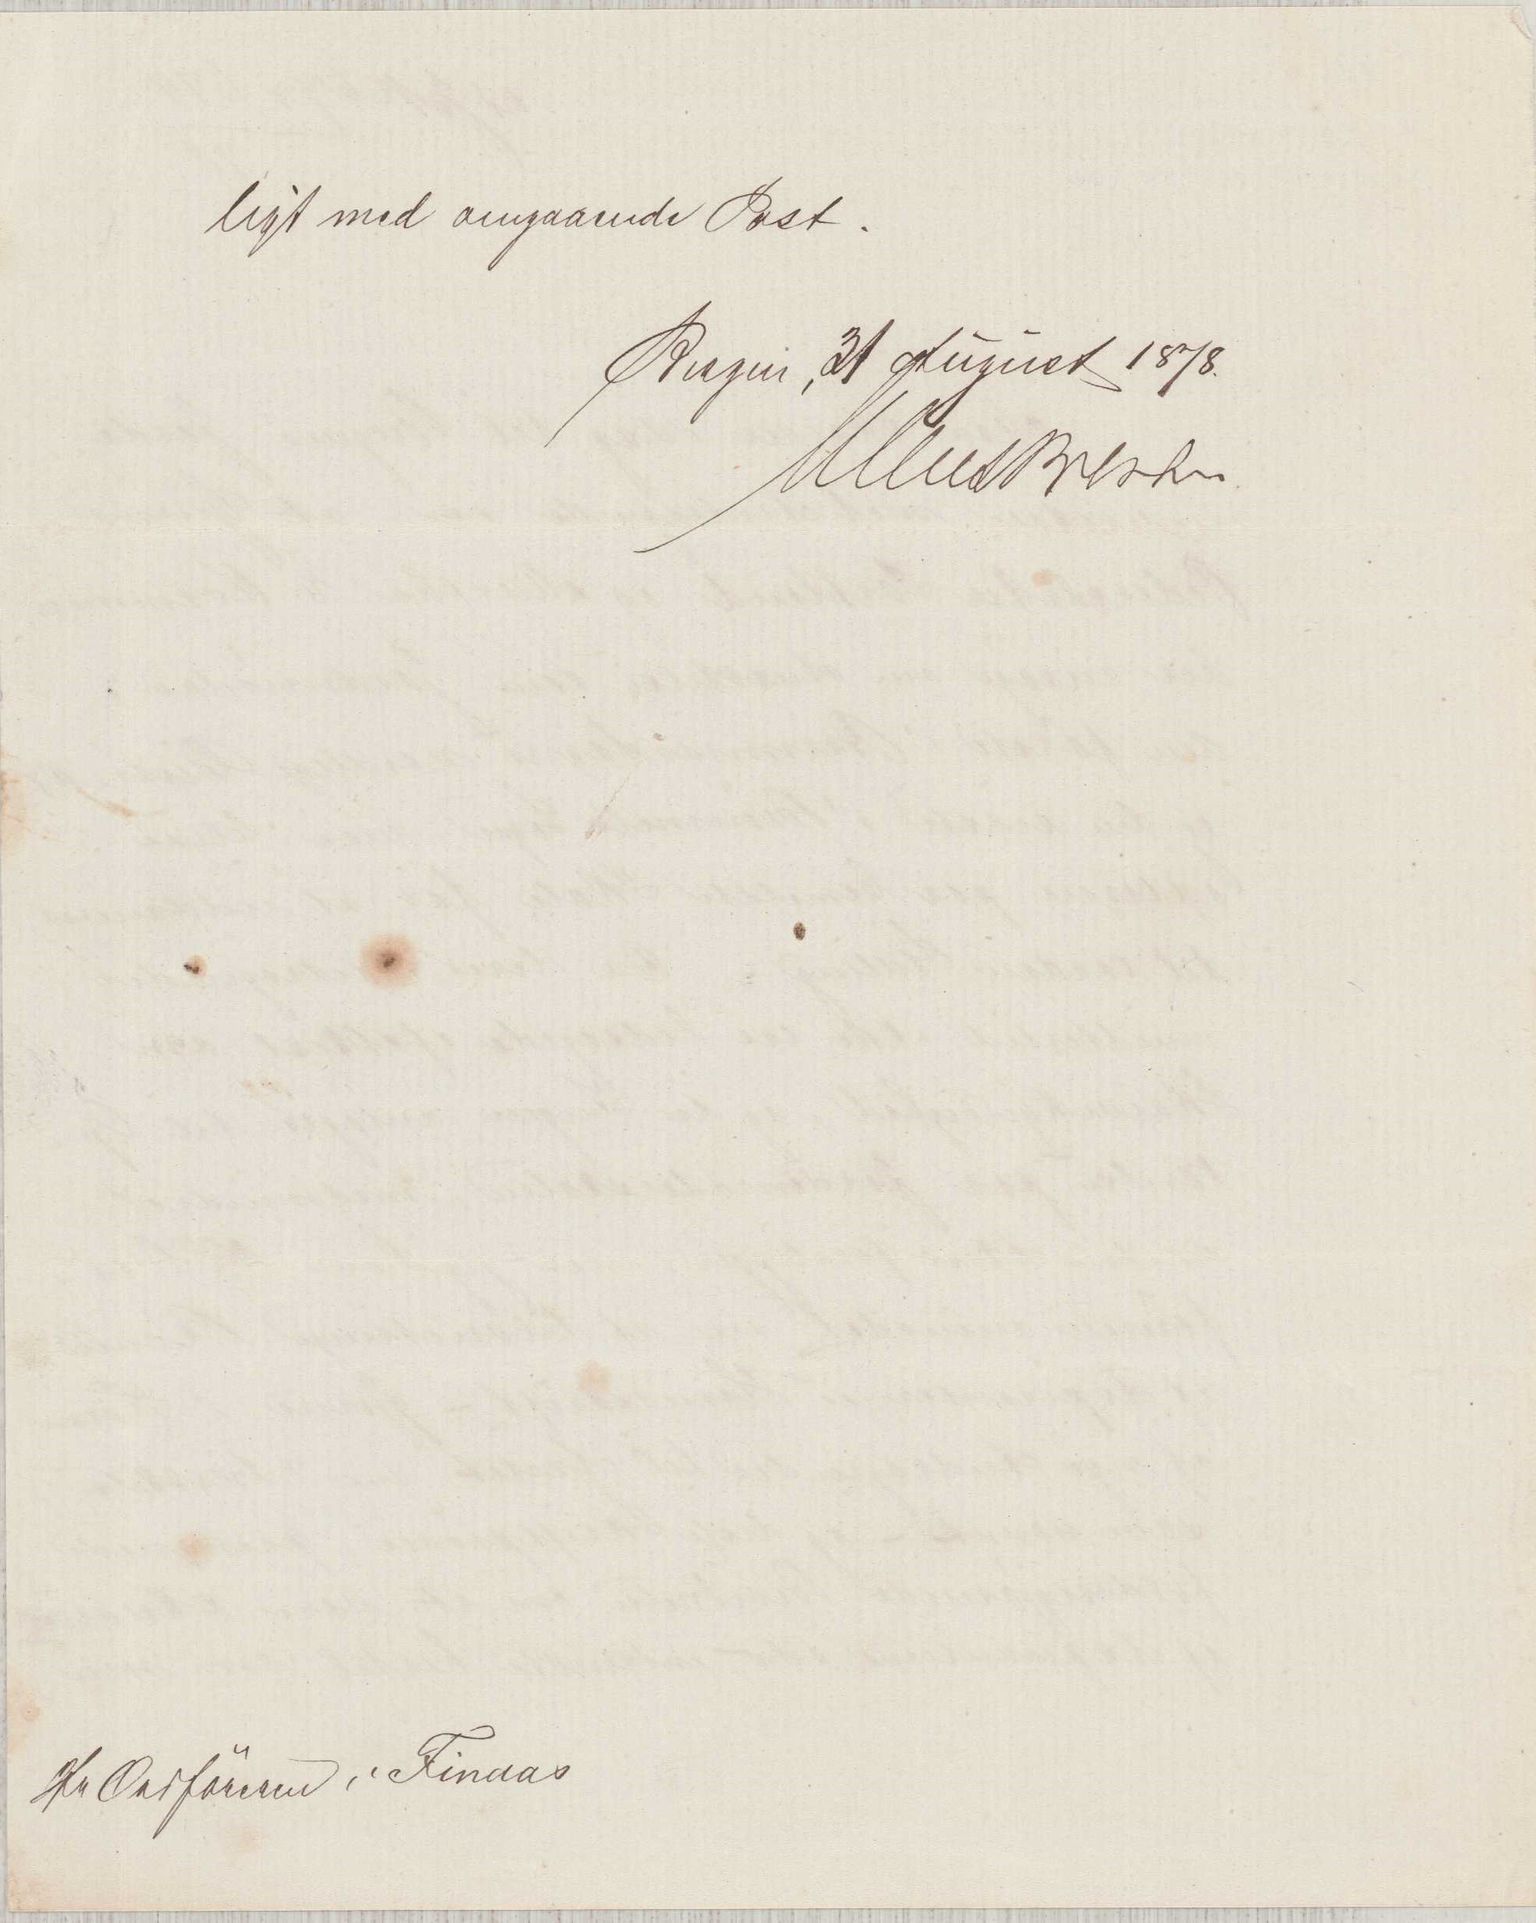 ligt med omgaaende Post.
Bergen, 31 August 1878.
Hr Ordføreren i Finaas